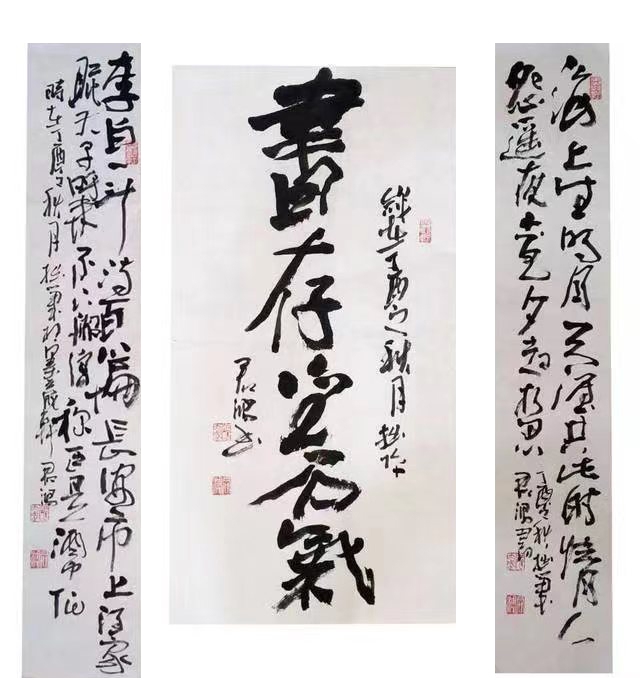 海上生明月天涯共此時情人
怨遥夜竟夕起相思
丁酉之秋拙筆
歲在丁酉之秋月拙作
書存金石氣
李白斗酒詩百篇長安市上酒家
眠天子呼来不上船自称臣是酒中仙
時在丁酉之秋月拙筆